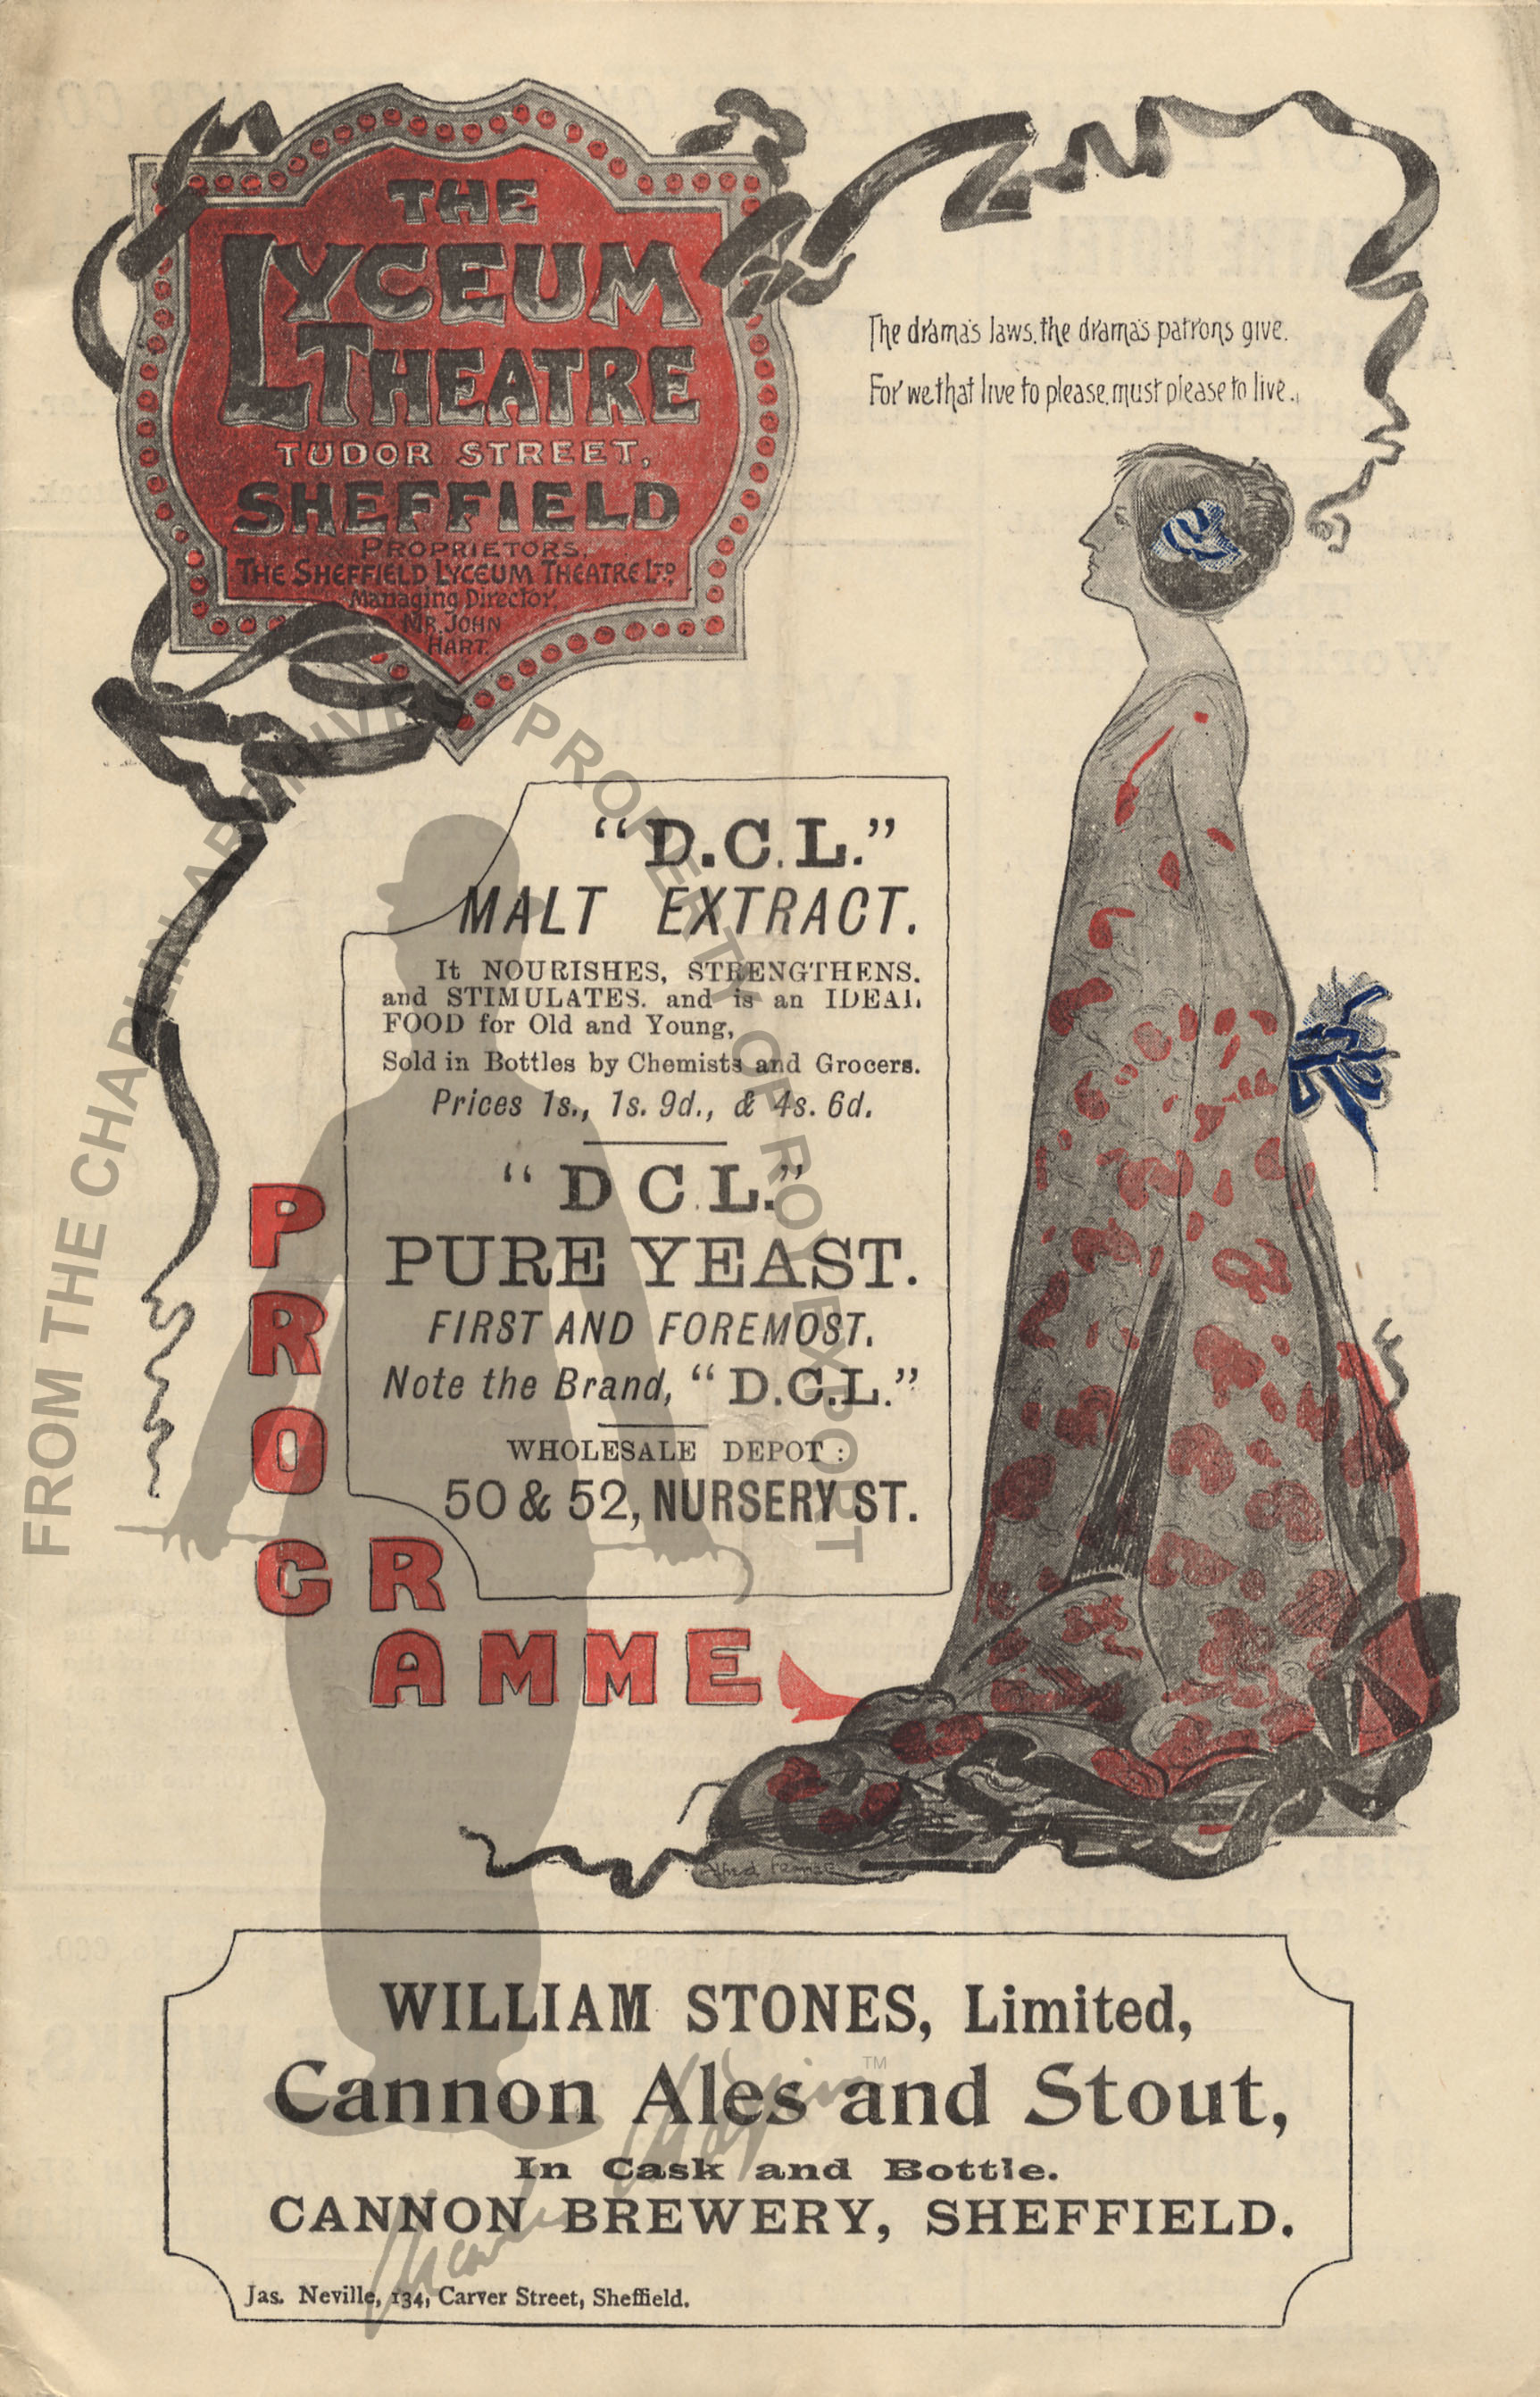 THE
LYCEUM
THEATRE
TUDOR STREET,
SHEFFIELD
PROPRIETORS,
THE SHEFFIELD LYCEUM THEATRE LTD
Managing Director,
MR. JOHN
HART.
The drama's laws, the drama's patrons give.
For we that live to please, must please to live.
"D.C.L."
MALT EXTRACT.
It NOURISHES, STRENGTHENS.
and STIMULATES. and is an IDEAL
FOOD for Old and Young,
Sold in Bottles by Chemists and Grocers.
Prices 1s., 1s. 9d., & 4s. 6d.
"D C.L."
PURE YEAST.
FIRST AND FOREMOST.
Note the Brand, "D.C.L."
WHOLESALE DEPOT :
50 & 52, NURSERY ST.
PROGRAMME
WILLIAM STONES, Limited,
Cannon Ales and Stout,
In Cask and Bottle.
CANNON BREWERY, SHEFFIELD.
Jas. Neville, 134, Carver Street, Sheffield.
FROM THE CHAPLIN ARCHIVES PROPERTY OF ROY EXPORT
Charlie Chaplin TM